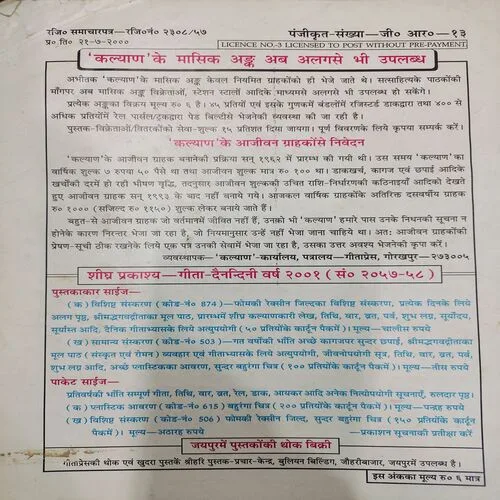 रजि० समाचारपत्र—रजि०नं० २३०८/५७
पंजीकृत-संख्या—जी० आर०—१३
प्र० ति० २१-७-२०००
LICENCE NO.-3 LICENSED TO POST WITHOUT PRE-PAYMENT
'कल्याण' के मासिक अङ्क अब अलगसे भी उपलब्ध
अभीतक 'कल्याण' के मासिक अङ्क केवल नियमित ग्राहकोंको ही भेजे जाते थे। सत्साहित्यके पाठकोंकी
माँगपर अब मासिक अङ्क विक्रेताओं, स्टेशन स्टालों आदिके माध्यमसे अलगसे भी उपलब्ध हो सकेंगे।
प्रत्येक अङ्कका विक्रय मूल्य रु० ६ है। ४५ प्रतियों एवं इसके गुणकमें बंडलोंमें रजिस्टर्ड डाकद्वारा तथा ४०० से
अधिक प्रतियोंमें रेल पार्सल/ट्रकद्वारा पेड बिल्टीसे भेजनेकी व्यवस्था की जा रही है।
पुस्तक-विक्रेताओं/वितरकोंको सेवा-शुल्क १५ प्रतिशत दिया जायगा। पूर्ण विवरणके लिये कृपया सम्पर्क करें।
'कल्याण' के आजीवन ग्राहकोंसे निवेदन
'कल्याण' के आजीवन ग्राहक बनानेकी प्रक्रिया सन् १९६२ में प्रारम्भ की गयी थी। उस समय 'कल्याण' का
वार्षिक शुल्क ७ रुपया ५० पैसे था तथा आजीवन शुल्क मात्र रु० १०० था। डाकखर्च, कागज एवं छपाई आदिके
खर्चोंकी दरमें हो रही भीषण वृद्धि, तदनुसार आजीवन शुल्ककी उचित राशि-निर्धारणकी कठिनाइयाँ आदिको देखते
हुए आजीवन ग्राहक सन् १९९३ के बाद नहीं बनाये गये। आजकल वार्षिक ग्राहकोंके अतिरिक्त दसवर्षीय ग्राहक
रु० १००० (सजिल्द रु० ११५०) शुल्क लेकर बनाये जाते हैं।
बहुत-से आजीवन ग्राहक जो वर्तमानमें जीवित नहीं हैं, उनको भी 'कल्याण' हमारे पास उनके निधनकी सूचना न
होनेके कारण निरन्तर भेजा जा रहा है, जो नियमानुसार उन्हें नहीं भेजा जाना चाहिये था। अतः आजीवन ग्राहकोंको
प्रेषण-सूची ठीक रखनेके लिये एक पत्र उनकी सेवामें भेजा जा रहा है, उसका उत्तर अवश्य भेजनेकी कृपा करें।
व्यवस्थापक—'कल्याण'-कार्यालय, पत्रालय—गीताप्रेस, गोरखपुर—२७३००५
शीघ्र प्रकाश्य—गीता-दैनन्दिनी वर्ष २००१ ( सं० २०५७-५८ )
पुस्तकाकार साईज—
( क ) विशिष्ट संस्करण ( कोड-नं० 874 )—फोमकी रेक्सीन जिल्दका विशिष्ट संस्करण, प्रत्येक दिनके लिये
अलग पृष्ठ, श्रीमद्भगवद्गीताका मूल पाठ, प्रारम्भमें शीघ्र कल्याणकारी लेख, तिथि, वार, व्रत, पर्व, शुभ लग्न, सूर्योदय,
सूर्यास्त आदि, दैनिक गीताभ्यासके लिये अत्युपयोगी ( ५० प्रतियोंके कार्टून पैकमें )। मूल्य—चालीस रुपये
( ख ) सामान्य संस्करण ( कोड-नं० 503 )—गत वर्षोंकी भाँति अच्छे कागजपर सुन्दर छपाई, श्रीमद्भगवद्गीताका
मूल पाठ ( संस्कृत एवं रोमन ) व्यवहार एवं गीताभ्यासके लिये अत्युपयोगी, जीवनोपयोगी सूत्र, तिथि, वार, व्रत, पर्व,
शुभ लग्न आदि, अच्छे प्लास्टिकका आवरण, सुन्दर बहुरंगा चित्र ( १०० प्रतियोंके कार्टून पैकमें )। मूल्य—तीस रुपये
पाकेट साईज—
प्रतिवर्षकी भाँति सम्पूर्ण गीता, तिथि, वार, व्रत, रेल, डाक, आयकर आदि अनेक नित्योपयोगी सूचनाएँ, रुलदार पृष्ठ।
( क ) प्लास्टिक आवरण ( कोड-नं० 615 ) बहुरंगा चित्र ( २०० प्रतियोंके कार्टून पैकमें )। मूल्य—पन्द्रह रुपये
( ख ) विशिष्ट संस्करण ( कोड-नं० 506 ) फोमकी रेक्सीन जिल्द, सुन्दर बहुरंगा चित्र ( १५० प्रतियोंके कार्टून
पैकमें )। मूल्य—अठारह रुपये
—प्रकाशन सूचनाकी प्रतीक्षा करें
जयपुरमें पुस्तकोंकी थोक बिक्री
गीताप्रेसकी थोक एवं खुदरा पुस्तकें श्रीहरि पुस्तक-प्रचार-केन्द्र, बुलियन बिल्डिंग, जौहरीबाजार, जयपुरमें उपलब्ध है।
इस अंकका मूल्य रु० ६ मात्र